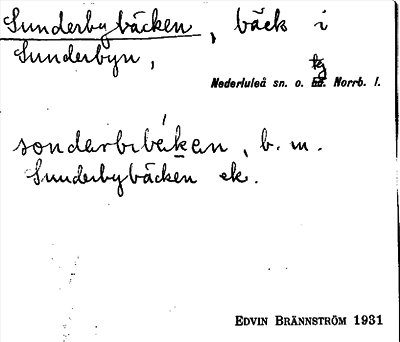 Sunderbybäcken, bäck i
Sunderbyn,
tg
Nederluleå sn. o. hd. Norrb. l.
sondarbibäken, b. m.
Sunderbybäcken ek.
EDVIN BRÄNNSTRÖM 1931